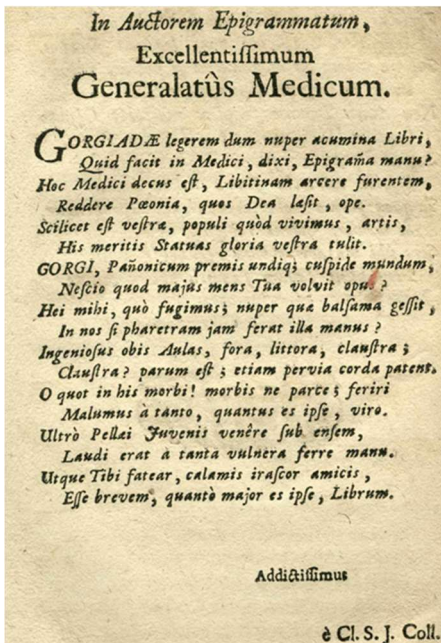 In Auctorem Epigrammatum,
Excellentiſſimum
Generalatûs Medicum.
GORGIADÆ legerem dum nuper acumina Libri,
Quid facit in Medici, dixi, Epigram̃a manu?
Hoc Medici decus eſt, Libitinam arcere furentem,
Reddere Pœonia, quos Dea læſit, ope.
Scilicet eſt veſtræ, populi quòd vivimus, artis,
His meritis Statuas gloria veſtra tulit.
GORGI, Pañonicum premis undiq; cuſpide mundum,
Neſcio quod majus mens Tua volvit opus?
Hei mihi, quò fugimus; nuper quæ balſama geſſit,
In nos ſi pharetram jam ferat illa manus?
Ingenioſus obis Aulas, fora, littora, clauſtra;
Clauſtra? parum eſt; etiam pervia corda patent.
O quot in his morbi! morbis ne parce; feriri
Malumus à tanto, quantus es ipſe, viro.
Ultrò Pellæi Juvenis venêre ſub enſem,
Laudi erat à tanta vulnera ferre manu.
Utque Tibi fatear, calamis iraſcor amicis,
Eſſe brevem, quantò major es ipſe, Librum.
Addictiſſimus
è Cl. S. J. Coll.